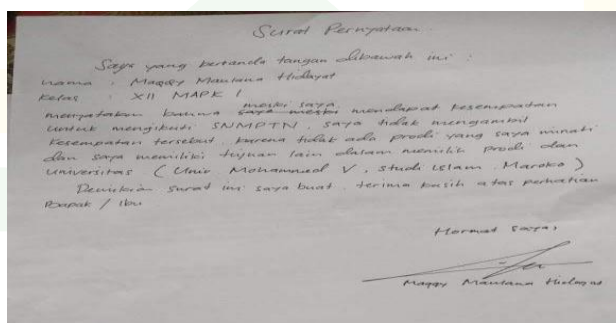 Surat Pernyataan
Saya yang bertanda tangan dibawah ini :
nama : Maqqy Maulana Hidayat
Kelas : XII MAPK 1
meski saya
menyatakan bahwa saya meski mendapat kesempatan
untuk mengikuti SNMPTN, saya tidak mengambil
kesempatan tersebut, karena tidak ada prodi yang saya minati
dan saya memiliki tujuan lain dalam memilih prodi dan
universitas ( Univ Mohammed V, studi Islam, Maroko )
Demikian surat ini saya buat, terima kasih atas perhatian
Bapak / Ibu
Hormat saya,
Maqqy Maulana Hidayat